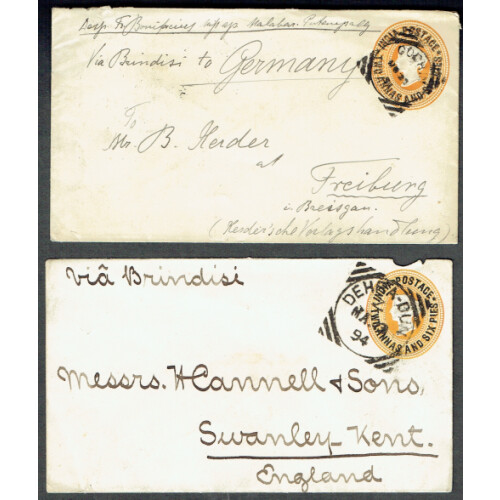 Via Brindisi to Germany
INDIA POSTAGE
TWO ANNAS AND SIX PIES
To
Mr. B. Herder
at
Freiburg
in Breisgau.
(Herder'sche Verlagshandlung)
viâ Brindisi
DEHRA-DUN
94
INDIA POSTAGE
TWO ANNAS AND SIX PIES
Messrs. H Cannell & Sons,
Swanley-Kent.
England